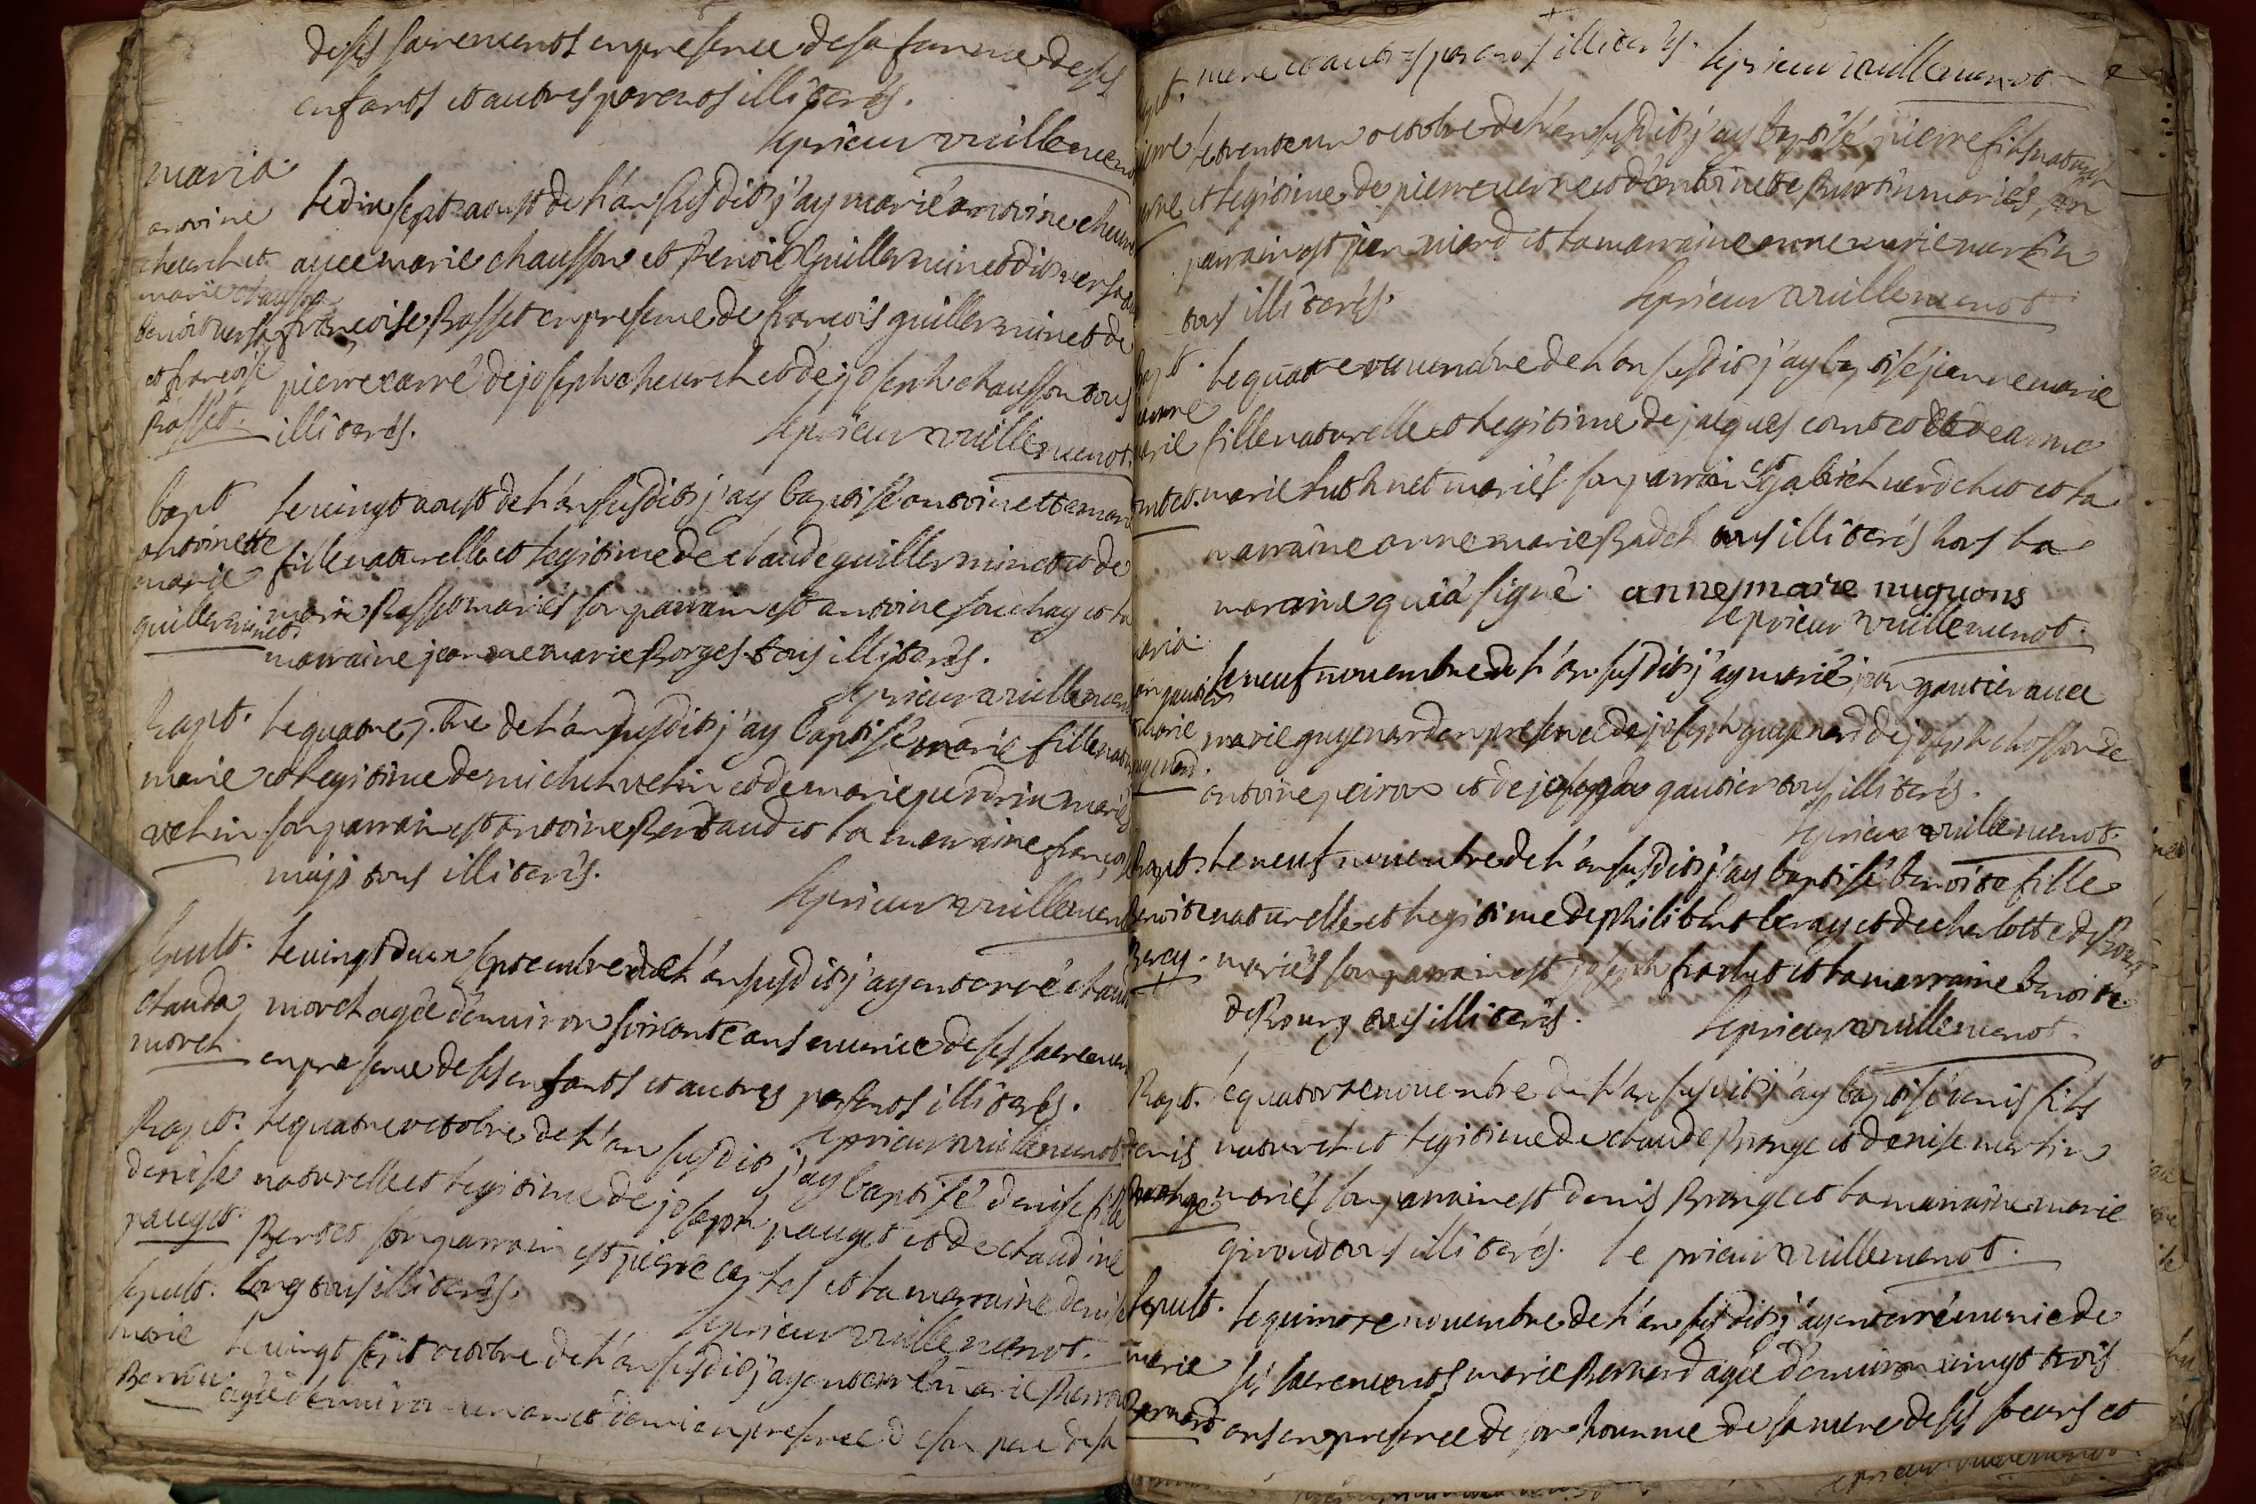 de ses sacrements en presence de sa femme de ses
enfants et autres parents illiterés.
le prieur vuillemenot
maria.
antoine
cheurel et
marie chausson
benoit
et françoise
Rasset.
le dix sept aoust de l'an susdit j'ay marié antoine
avec marie chausson et Benoit Guillerminet dit
françoise Rasset en presence de françois guillerminet de
pierre carré de joseph cheurel et de joseph chausson tous
illiterés.
le prieur vuillemenot.
bapt
antoinette
marie
guillerminet
le vingt aoust de l'an susdit j'ay baptisé antoinette marie
fille naturelle et legitime de claude guillerminet et de
marie Rasset mariés son parrain est antoine souchay et la
marraine jeanne marie Borges tous illiterés.
le prieur vuillemenot
Bapt.
marie
velin
le quatre 7.bre de l'an susdit j'ay baptisé marie fille
et legitime de michel velin et de marie perdrix mariés
son parrain est antoine Bertaud et la marraine
tous illiterés.
le prieur vuillemenot
sepult.
clauda
morel
le vingt deux septembre de l'an susdit j'ay enterré
morel agée d'environ soixante ans munie de ses sacremen
en presence de ses enfants et autres parents illiterés.
le prieur vuillemenot
Bapt.
denise
pauget.
le quatre octobre de l'an susdit j'ay baptisé denise fille
naturelle et legitime de joseph pauget et de claudine
son parrain est pierre et la marraine denise
long tous illiterés.
le prieur vuillemenot.
sepult.
marie
le vingt sept octobre de l'an susdit j'ay enterré marie
agée d'environ un an et demi en presence de son pere de sa
mere et autres parents illiterés. le prieur vuillemenot
le trente un octobre de l'an susdit j'ay baptisé pierre fils naturel
et legitime de pierre verne et d'antoinette mariés son
parrain est jean miard et la marraine anne marie martin
tous illiterés.
le prieur vuillemenot
le quatre novembre de l'an susdit j'ay baptisé jeanne marie
fille naturelle et legitime de jacques contet et de anne
marie mariés son parrain est gabriel et la
marraine anne marie tous illiterés hors la
maraine qui a signé. anne marie nuguons
le prieur vuillemenot.
maria.
jean gautier
et marie
guyenard.
le neuf novembre de l'an susdit j'ay marié jean gautier avec
marie guyenard en presence de joseph guyenard de joseph chosson de
antoine peiroux et de joseph gautier tous illiterés.
le prieur vuillemenot.
Bapt.
Benoite
Beray.
le neuf novembre de l'an susdit j'ay baptisé benoite fille
naturelle et legitime de philibert beray et de charlotte de Bourg
mariés son parrain est joseph et la marraine Benoite
de Bourg tous illiterés.
le prieur vuillemenot.
Bapt.
denis
Brange.
le quatorze novembre de l'an susdit j'ay baptisé denis fils
naturel et legitime de claude Brange et denise martin
mariés son parrain est denis Brange et la marraine marie
giroud tous illiterés. le prieur vuillemenot.
sepult.
marie
Bernard
le quinze novembre de l'an susdit j'ay enterré munie de
ses sacrements marie Bernard agée d'environ vingt trois
ans en presence de son homme de sa mere de ses soeurs et